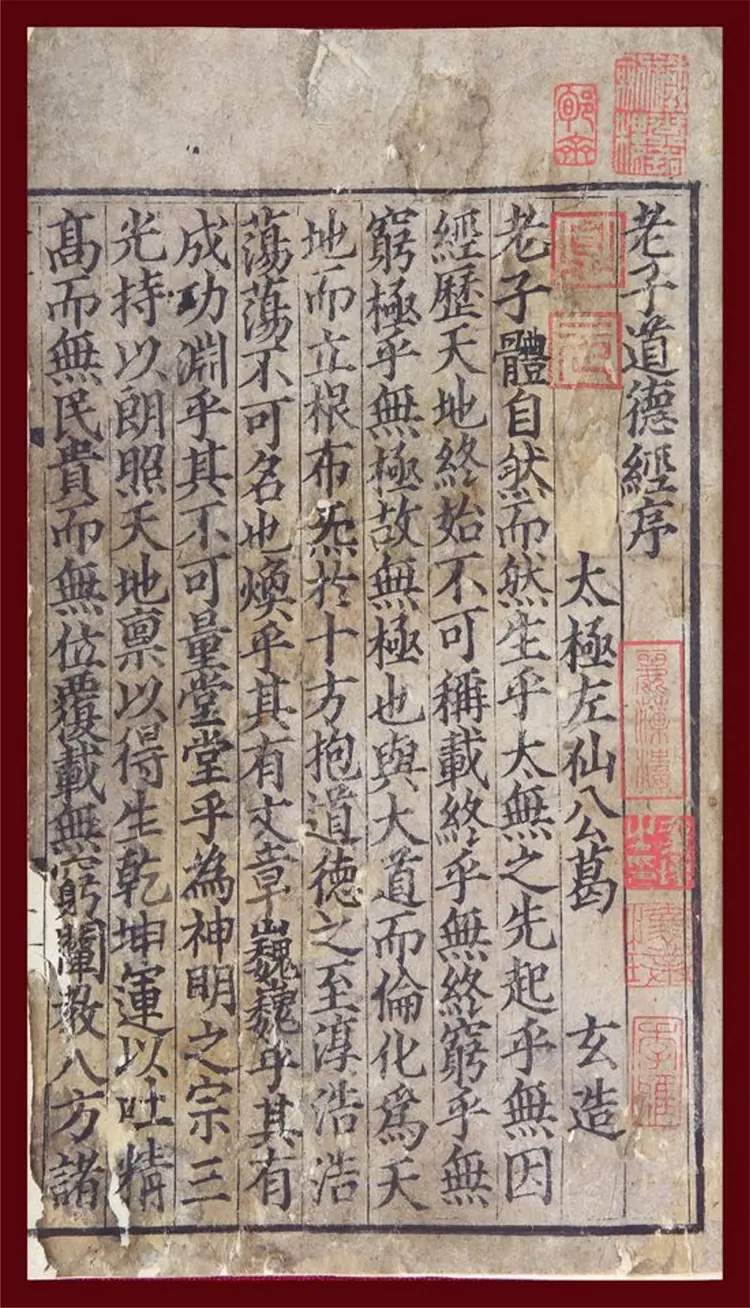 老子道德經序
太極左仙公葛 玄造
老子體自然而然生乎太無之先起乎無因
經歷天地終始不可稱載終乎無終窮乎無
窮極乎無極故無極也與大道而倫化爲天
地而立根布炁於十方抱道德之至淳浩浩
蕩蕩不可名也煥乎其有文章巍巍乎其有
成功淵乎其不可量堂堂乎為神明之宗三
光持以朗照天地禀以得生乾坤運以吐精
高而無民貴而無位覆載無窮闡教八方諸